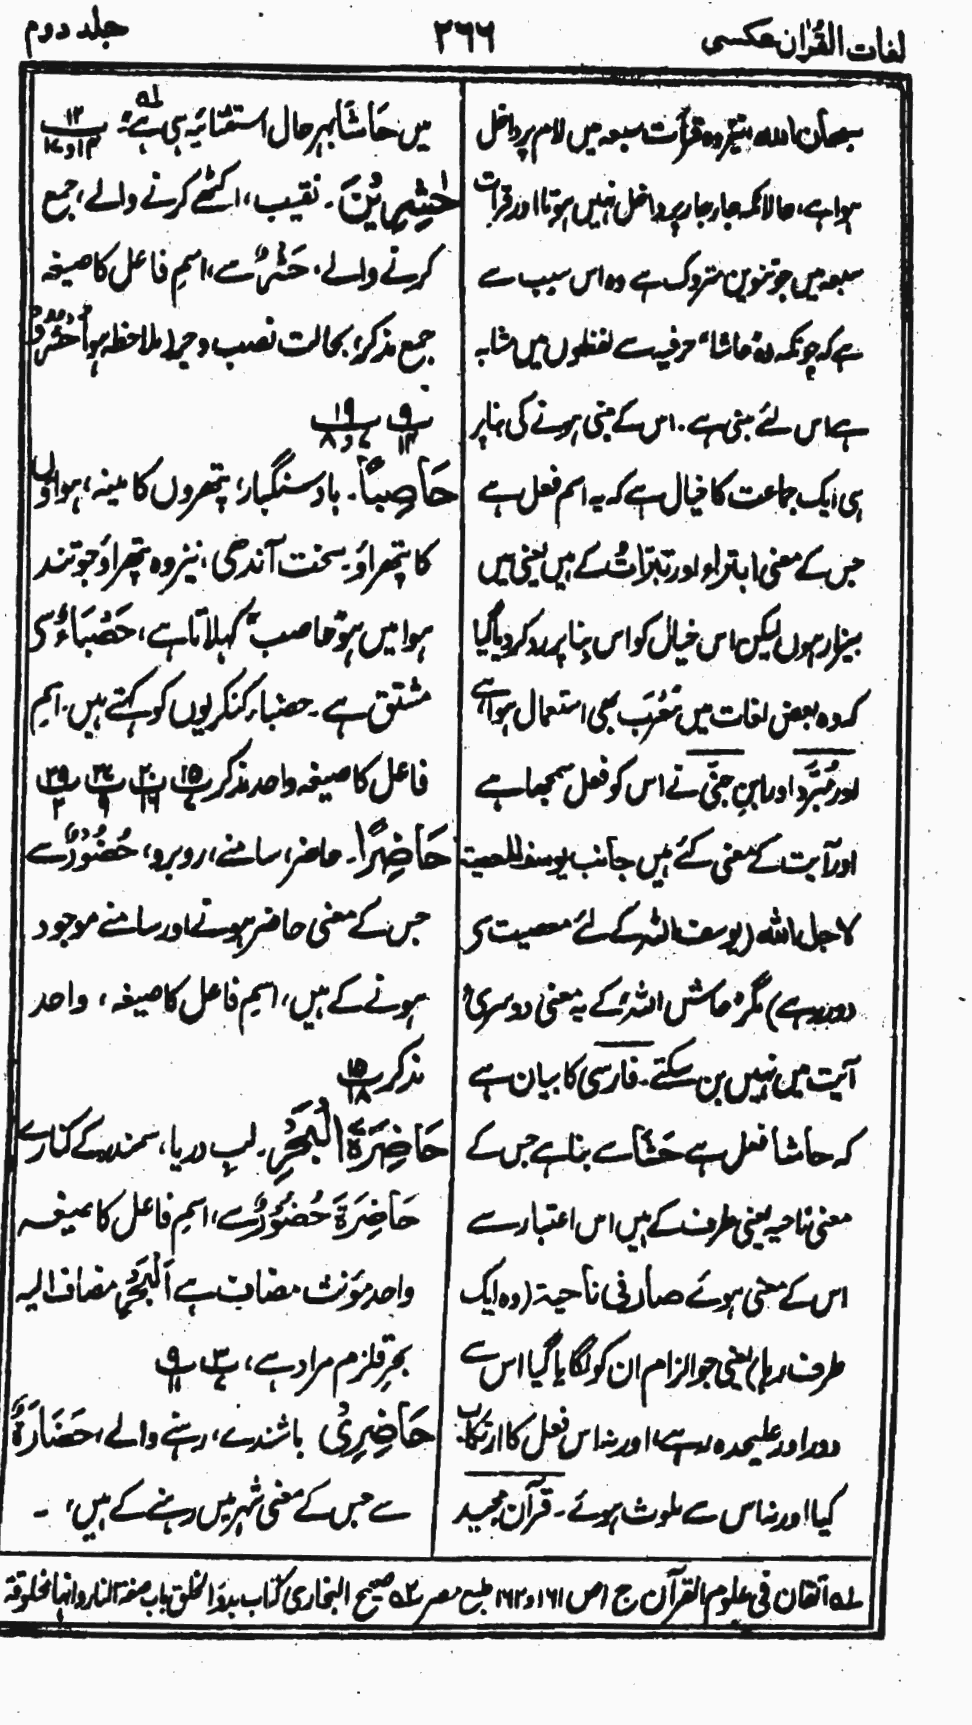 لغات القرآن عکسی
۲۶۶
جلد دوم
سبحان اللہ نیز وہ قرأت سبعہ میں لام پر داخل
ہوا ہے، حالانکہ جار جار پر داخل نہیں ہوتا اور قرأت
سبعہ میں جو تنوین متروک ہے وہ اس سبب سے
ہے کہ چونکہ وہ حاشا حرفیہ سے لفظوں میں مشابہ
ہے اس لئے مبنی ہے۔ اس کے مبنی ہونے کی بنا پر
ہی ایک جماعت کا خیال ہے کہ یہ اسم فعل ہے
جس کے معنی اتبرأ اور تبرّأتُ کے ہیں یعنی میں
بیزار ہوں لیکن اس خیال کو اس بنا پر رد کر دیا گیا
کہ وہ بعض لغات میں مُعرَب بھی استعمال ہوا ہے
اور مُبَرَّد اور ابن جنّی نے اس کو فعل سمجھا ہے
اور آیت کے معنی کئے ہیں جانب یوسف المعصیۃ
لاجل اللہ (یوسف اللہ کے لئے معصیت سے
دور رہے) مگر حاش للہ کے یہ معنی دوسری
آیت میں نہیں بن سکتے۔ فارسی کا بیان ہے
کہ حاشا فعل ہے حَشَا سے بنا ہے جس کے
معنی ناحیہ یعنی طرف کے ہیں اس اعتبار سے
اس کے معنی ہوئے صار فی ناحیۃ (وہ ایک
طرف رہا) یعنی جو الزام ان کو لگایا گیا اس سے
دور اور علیحدہ رہے، اور نہ اس فعل کا ارتکاب
کیا اور نہ اس سے ملوث ہوئے۔ قرآن مجید
میں حَاشَا بہر حال استثنائیہ ہی ہے لہ ۱۲ ۱۴و۱۷
حٰشِرِیْنَ۔ نقیب، اکٹھے کرنے والے، جمع
کرنے والے، حَشْرٌ سے، اسمِ فاعل کا صیغہ
جمع مذکر، بحالت نصب و جر (ملاحظہ ہو اُحْشُرُوْا)
۹ ۱۲ ۱۹ ۷و۸
حَاصِبًا۔ بادِ سنگبار، پتھروں کا مینہ، ہواؤں
کا پتھراؤ۔ سخت آندھی، نیز وہ پتھراؤ جو تند
ہوا میں ہو حاصب کہلاتا ہے، حَصْبَاءُ سے
مشتق ہے۔ حصباء کنکریوں کو کہتے ہیں۔ اسم
فاعل کا صیغہ واحد مذکر ۱۵ ۷ ۲۰ ۱۶ ۲۷ ۹ ۲۹ ۲
حَاضِرًا۔ حاضر، سامنے، روبرو، حُضُوْرٌ سے
جس کے معنی حاضر ہونے اور سامنے موجود
ہونے کے ہیں، اسمِ فاعل کا صیغہ، واحد
مذکر ۱۵ ۱۸
حَاضِرَةَ الْبَحْرِ۔ لبِ دریا، سمندر کے کنارے
حَاضِرَةَ حُضُوْرٌ سے، اسمِ فاعل کا صیغہ
واحد مؤنث مضاف ہے اَلْبَحْرِ مضاف الیہ
بحرِ قلزم مراد ہے، ۳ ۷ ۹ ۱۱
حَاضِرِیْ باشندے، رہنے والے، حَضَارَةٌ
سے جس کے معنی شہر میں رہنے کے ہیں، ۔
لہ اتقان فی علوم القرآن ج ۱ ص ۱۶۱ و ۱۶۲ طبع مصر ۲ہ صحیح البخاری کتاب بدؤ الخلق باب صفۃ النار وانہا مخلوقۃ